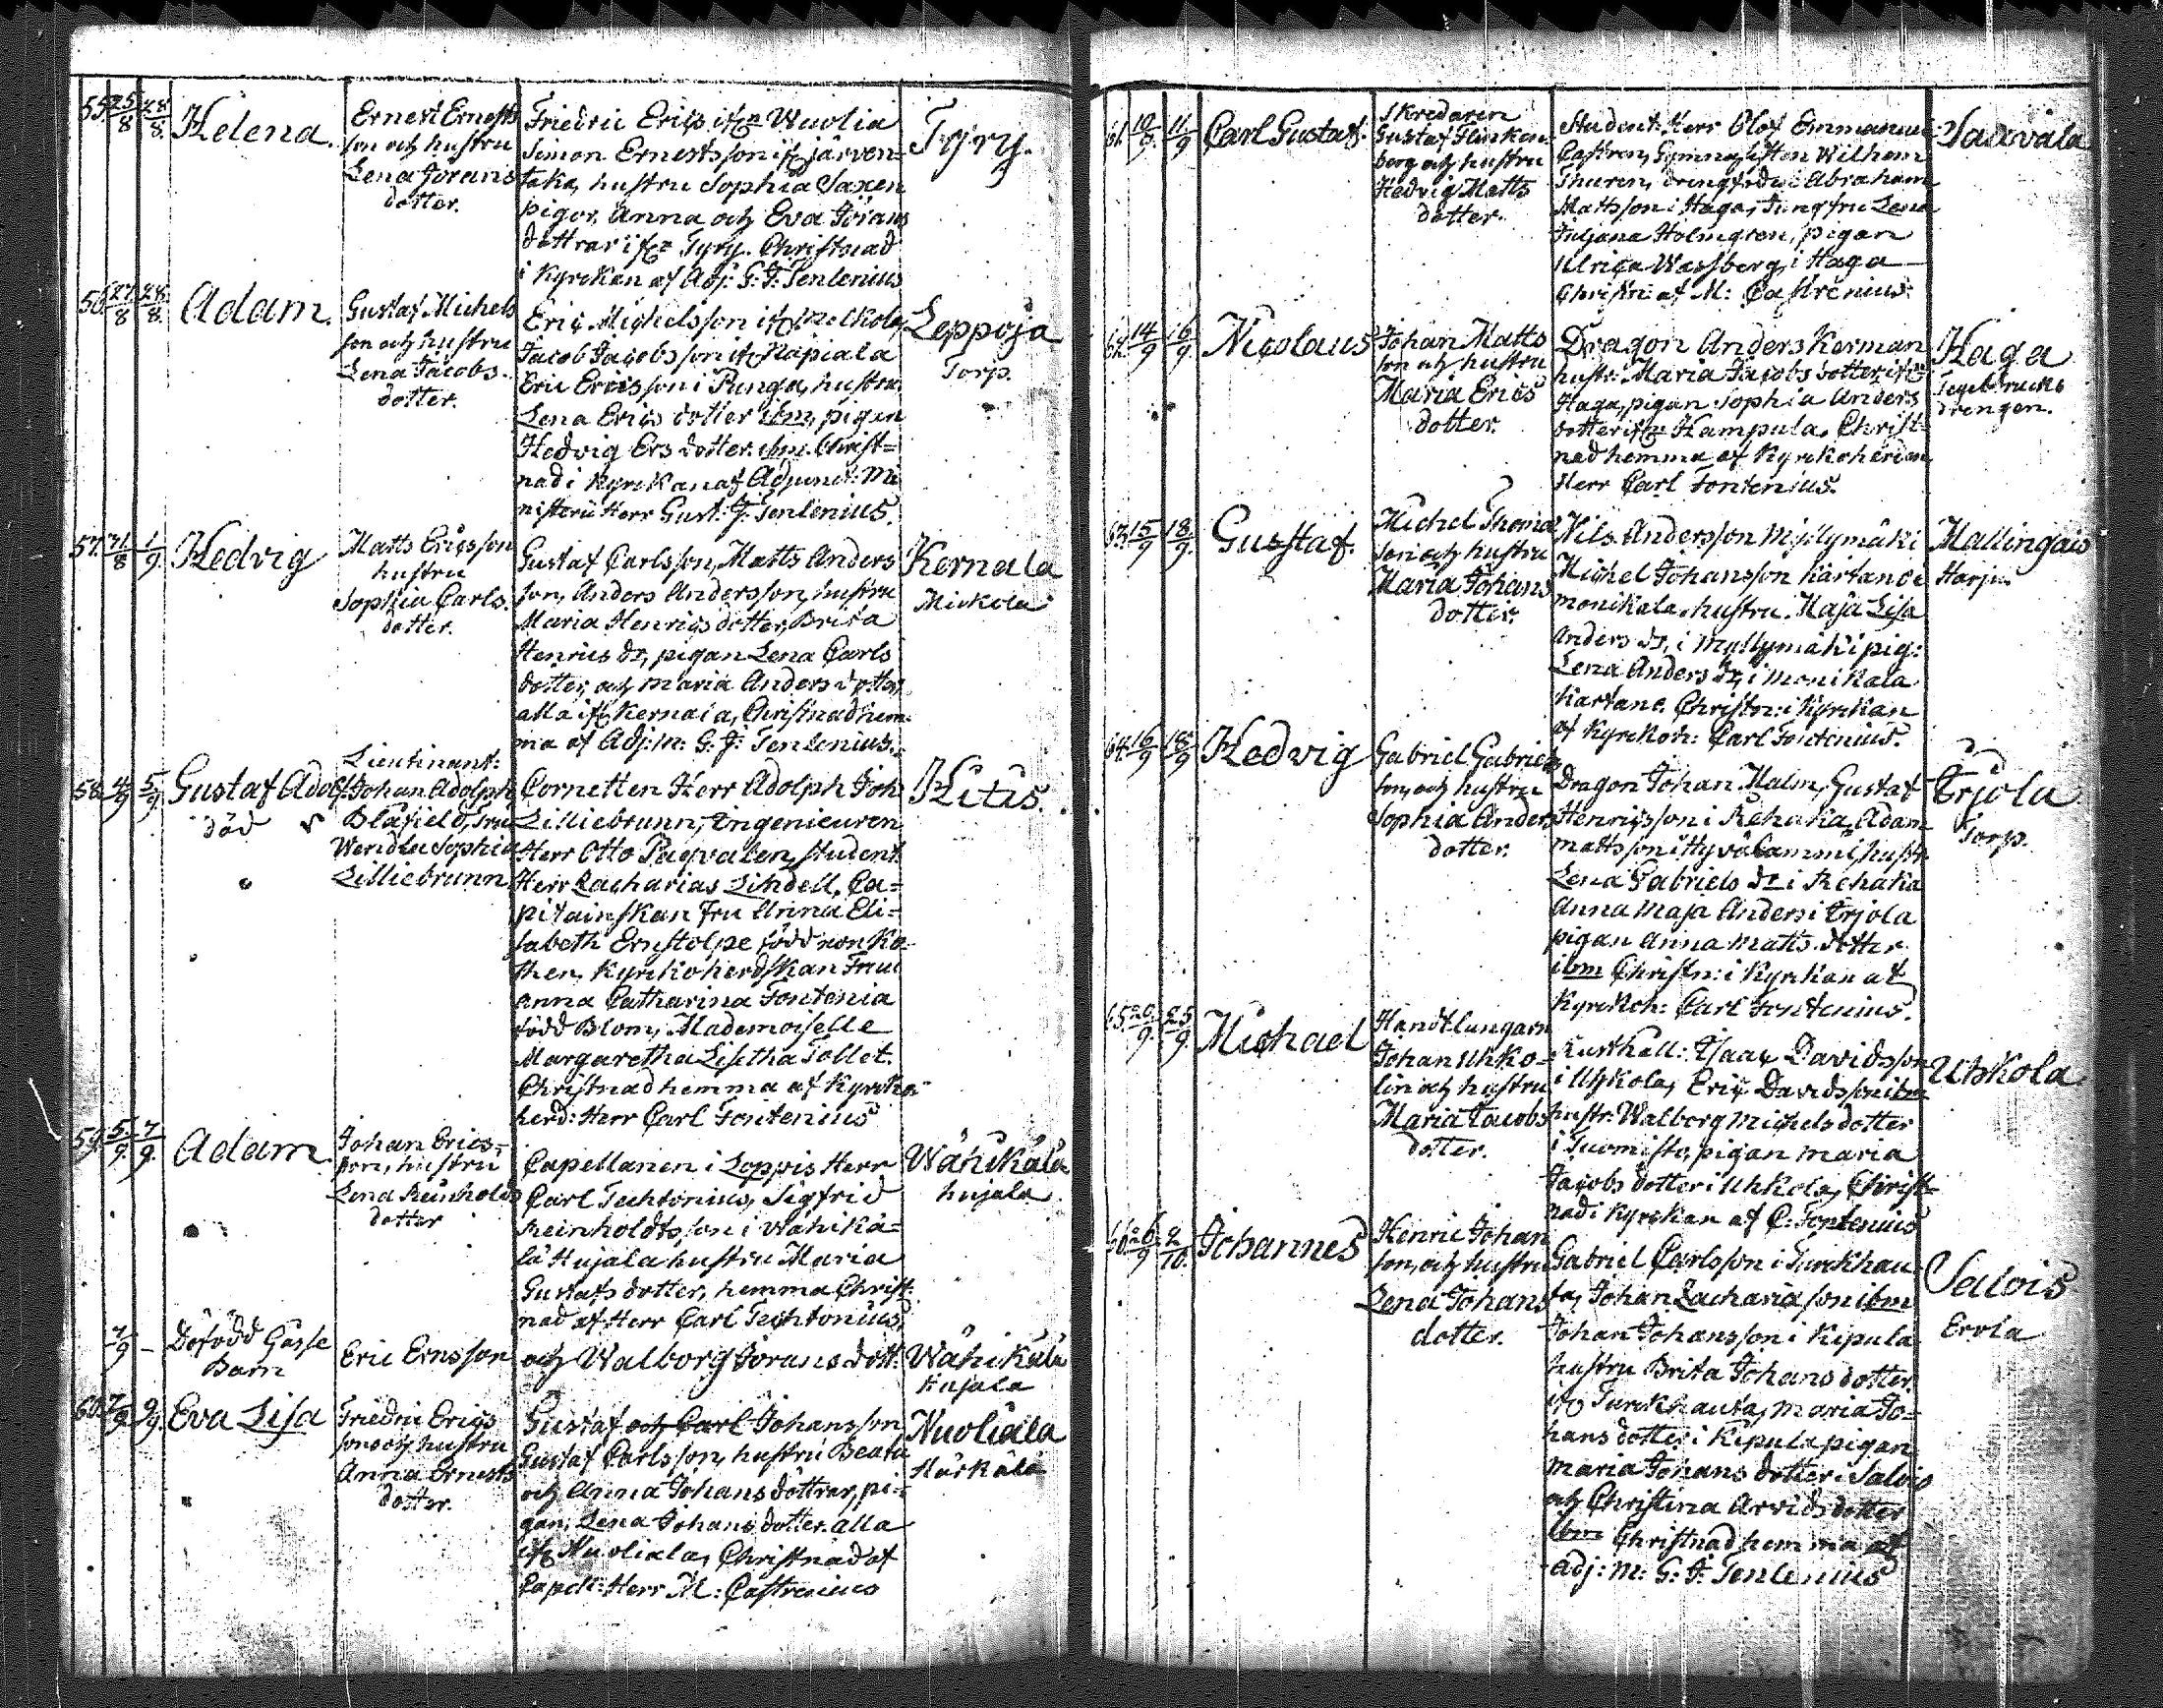 55. 25/8 28/8. Helena.
Ernest Ernests
son och hustru
Lena Jörans
dotter.
Friedric Erics
Simon Ernestsson ifr. Järven-
taka, hustru Sophia Saxen
pigor, Anna och Eva Jörans
döttrar ifr. Tyry. Christnad
i Kyrckan af Adj. G. F. Tenlenius
Tyry.
56. 27/8 28/8. Adam.
Gustaf Michels
son och hustru
Lena Jacobs-
dotter.
Eric Michelsson
Jacob Jacobsson
Eric Ericsson i Punga, hustru
Lena Erics dotter ibm, pigan
Hedvig Ers dotter. ibm. Christ=
nad i Kyrckan af Adjunct: Mi
nisterii Herr Gust: F. Tenlenius.
Leppoja
Torp.
57. 31/8 1/9. Hedvig
Matts Ericsson
hustru
Sophia Carls.
dotter.
Gustaf Carlsson, Matts Anders
son, Anders Andersson, hustru
Maria Henrics dotter, Brita
Henrics dr, pigan Lena Carls
dotter, och Maria Anders dotter,
alla ifr Kernala, Christnad hem-
ma af Adj: M: G: F: Tenlenius.
Kernala
Mickola
58. 4/9 5/9 Gustaf Adolf.
död
Lieutinant:
Johan Adolph
Blåfield, Fru
Wendla Sophia
Lilliebrunn
Cornetten Herr Adolph Joh
Lilliebrunn, Ingenieuren
Herr Otto Paqvalen, student
Herr Zacharias Lindell, Ca=
pitainskan Fru Anna Eli=
sabeth Ernstolpe född von Kö-
then, Kyrckoherdskan Fru
Anna Catharina Fontenia
född Blom, Mademoiselle
Margaretha Lisetha Tollet.
Christnad hemma af Kyrcko-
herd: Herr Carl Fontenius
Kitis.
59. 5/9. 7/9. Adam.
Johan Erics-
son, hustru
Lena Reinholds
dotter
Capellanen i Loppis Herr
Carl Techtonius, Sigfrid
Reinholdtsson i Wähikä=
lä Hujala hustru Maria
Gustafs dotter, hemma Christ-
nad af Herr Carl Techtonius,
Wähikälä
hujala
7/9 - Döfödd Gosse
Barn
Eric Ernsson
och Walborg Jörans dott.
Wähikälä
Hujala
60. 7/9 9/9. Eva Lisa
Friedric Erics
son och hustru
Anna Ernests
dotter.
Gustaf och Carl Johansson
Gustaf Carlsson, hustru Beata
och Anna Johans döttrar, pi-
gan, Lena Johans dotter. alla
ifr Nuoliala, Christnad af
Capell: Herr M: Castrenius
Nuoliala
Härkälä
61. 10/9. 11/9 Carl Gustaf.
Skredaren
Gustaf Flinken-
berg och hustru
Hedvig Matts
dotter.
Student: Herr Olof Emmanuel
Castren, Gymnasisten Wilhem
Thuren, Abraham
Mattsson i Haga, Jungfru Lena
Juljana Holmgren, pigan
Ulrica Wassberg, i Haga
Christn: af M: Castrenius.
62. 14/9 16/9. Nicolaus
Johan Matts
son och hustru
Maria Erics
dotter.
Dragon Anders Kerman
hustr: Maria Jacobs dotter ifr
Haga, pigan Sophia Anders
dotter ifr Hampula. Christ-
nad hemma af Kyrckoherden
Herr Carl Fontenius.
Haga
Tegelbrucks
drengen.
63. 15/9 18/9. Gustaf.
Michel Thomas
son och hustru
Maria Johans
dotter.
Nils Andersson Myllymäki
Michel Johansson Kartano
monikala, hustru. Kaja Lisa
Anders dr, i Myllymäki pig:
Lena Anders dr, i Monikala
Kartano. Christn: i Kyrckan
af Kyrckoh: Carl Fontenius.
Mallingais
Harju.
64. 16/9 18/9 Hedvig
Gabriel Gabriels
son, och hustru
Sophia Anders
dotter.
Dragon Johan Malm, Gustaf
Henricsson i Rehaka, Adam
Mattsson i Hyvälammi, hustr.
Lena Gabriels dr i Rehaka
Anna Maja Anders i Erjola
pigan Anna Matts. dotter
ibm Christn: i Kyrckan af
Kyrckoh: Carl Fontenius.
Erjola
Torp.
65. 25/9. Michael
Handtlangarn
Johan Uhko-
lin och hustru
Maria Jacobs
dotter.
Rusthåll: Isaac Davidsson
i Uhkola, Eric Davidsson ibm
hustr: Walborg Michels dotter
i Suomisto, pigan Maria
Jacobs dotter i Uhkola, Christ-
nad i Kyrckan af C. Fontenius
Uhkola
66. 26/9 2/10. Johannes
Henric Johan
son, och hustru
Lena Johans
dotter.
Gabriel Carlsson i Turckhau-
ta, Johan Zachariasson ibm
Johan Johansson i Kipula
hustru Brita Johans dotter.
ifr Turckhauta, Maria Jo-
hans dotter i Kipula pigan
Maria Johans dotter i Salois
och Christina Arvids dotter
ibm Christnad hemma af
Adj: M: G: F: Tenlenius
Salois
Erola